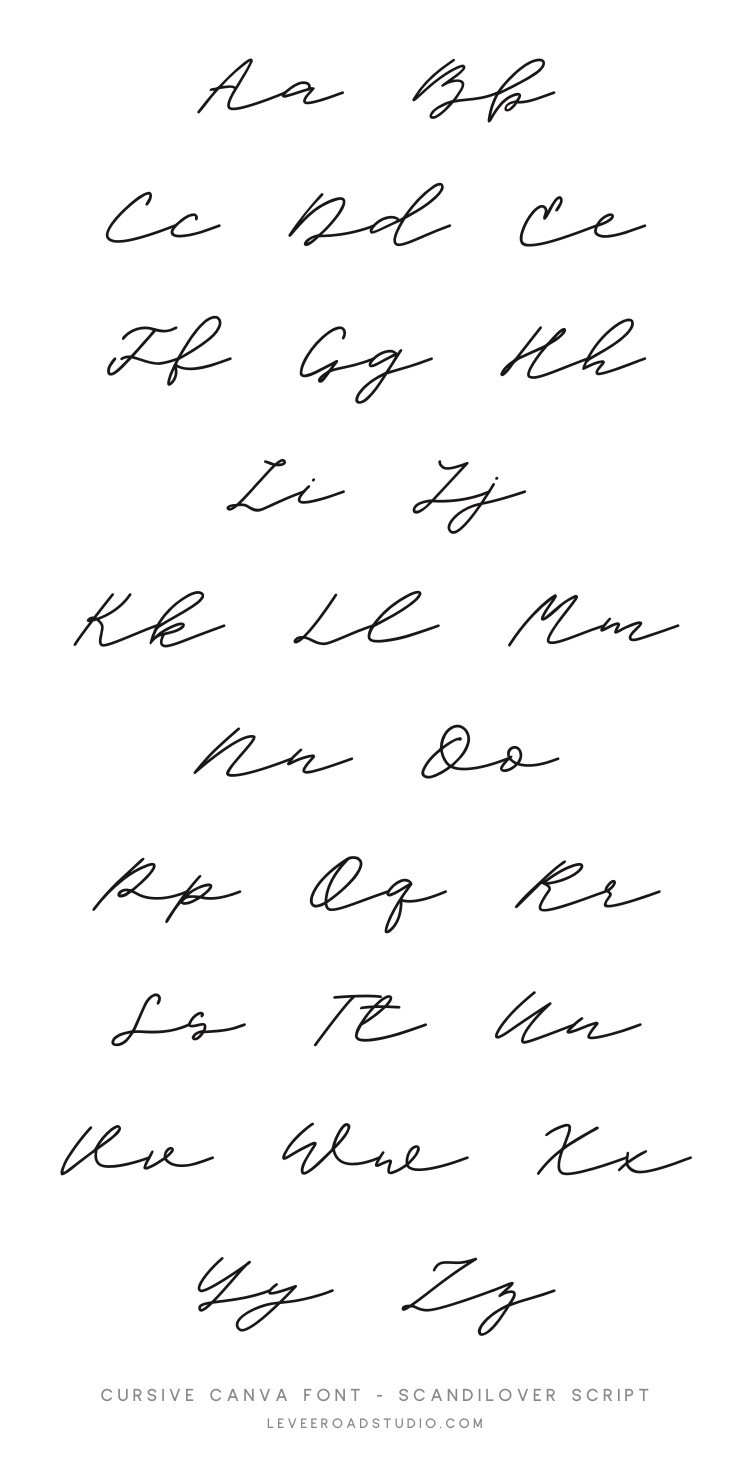 Aa Bb
Cc Dd Ee
Ff Gg Hh
Ii Jj
Kk Ll Mm
Nn Oo
Pp Qq Rr
Ss Tt Uu
Vv Ww Xx
Yy Zz
CURSIVE CANVA FONT - SCANDILOVER SCRIPT
LEVEEROADSTUDIO.COM